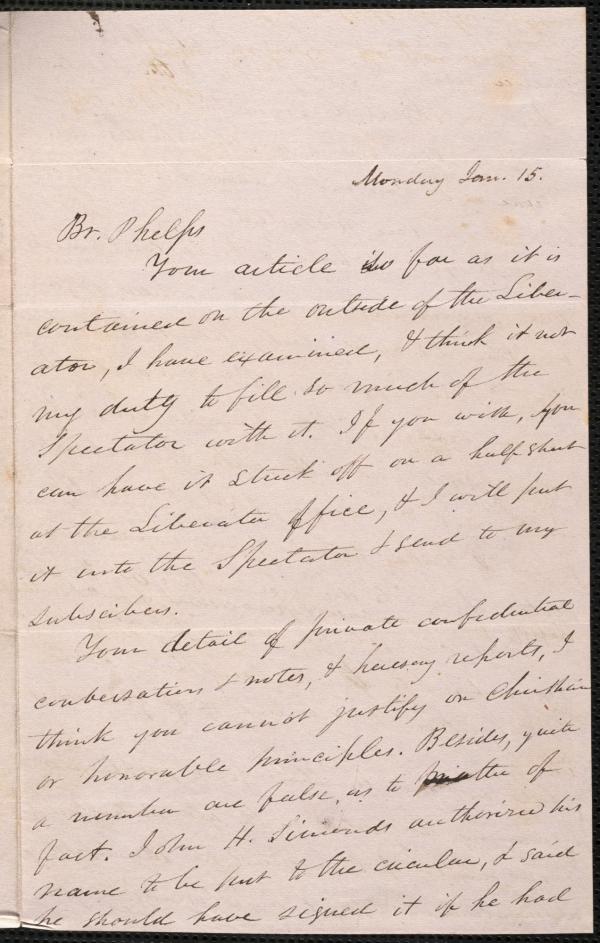 Monday Jan. 15.
Br. Phelps
Your article so far as it is
contained on the outside of the Liber-
ator, I have examined, & think it not
my duty to fill so much of the
Spectator with it. If you wish, you
can have it struck off on a half sheet
at the Liberator Office, & I will put
it into the Spectator & send to my
subscribers.
Your detail of private confidential
conversations & notes, & hearsay reports, I
think you cannot justify on Christian
or honorable principles. Besides, quite
a number are false, as to matter of
fact. John H. Simonds authorized his
name to be put to the circular, & said
he should have signed it if he had